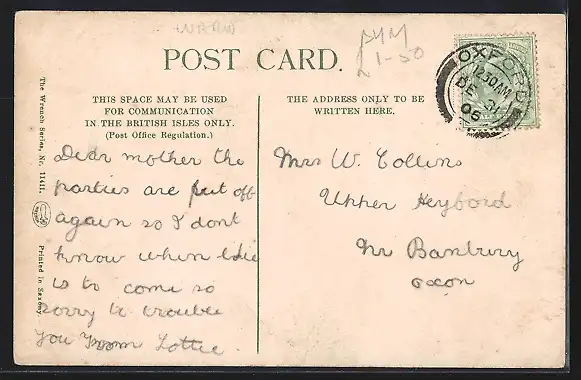 WARD
PHM
£1-50
POST CARD.
THIS SPACE MAY BE USED
FOR COMMUNICATION
IN THE BRITISH ISLES ONLY.
(Post Office Regulation.)
THE ADDRESS ONLY TO BE
WRITTEN HERE.
OXFORD
12.30AM
DE 31
06
The Wrench Series, No. 11411.
Printed in Saxony.
Dear mother the
parties are put off
again so I dont
know when
is to come so
sorry to trouble
you From Lottie
Mrs W. Collins
Upper Heyford
Nr Banbury
Oxon